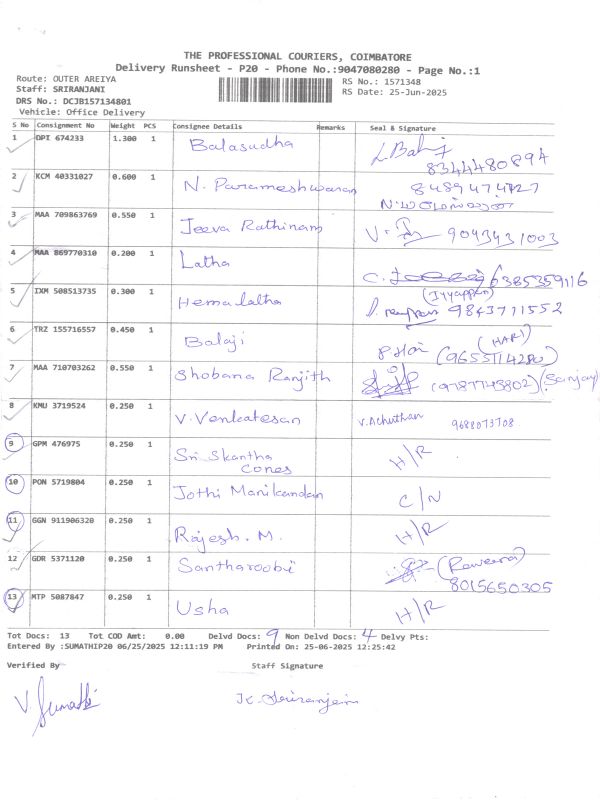 THE PROFESSIONAL COURIERS, COIMBATORE
Delivery Runsheet - P20 - Phone No.:9047080280 - Page No.:1
Route: OUTER AREIYA
RS No.: 1571348
Staff: SRIRANJANI
RS Date: 25-Jun-2025
DRS No.: DCJB157134801
Vehicle: Office Delivery
S No Consignment No Weight PCS Consignee Details Remarks Seal & Signature
1 DPI 674233 1.300 1 Balasudha
8344480894
2 KCM 40331027 0.600 1 N. Parameshwaran 8489474727
3 MAA 709863769 0.550 1 Jeeva Rathinam 9043431003
4 MAA 869770310 0.200 1 Latha
6385359116
5 IXM 508513735 0.300 1 Hemalatha (Iyyappan)
9843711552
6 TRZ 155716557 0.450 1 Balaji (HARI)
7 MAA 710703262 0.550 1 Shobana Ranjith (9787745802) (Sanjay)
8 KMU 3719524 0.250 1 V. Venkatesan V. Achuthan 9688073708
9 GPM 476975 0.250 1 Sri Skantha Cones H/R
10 PON 5719804 0.250 1 Jothi Manikandan C/N
11 GGN 911906320 0.250 1 Rajesh. M. H/R
12 GDR 5371120 0.250 1 Santharoobi (Raveena)
8015650305
13 MTP 5087847 0.250 1 Usha H/R
Tot Docs: 13 Tot COD Amt: 0.00 Delvd Docs: 9 Non Delvd Docs: 4 Delvy Pts:
Entered By :SUMATHIP20 06/25/2025 12:11:19 PM Printed On: 25-06-2025 12:25:42
Verified By Staff Signature
V. Sumathi